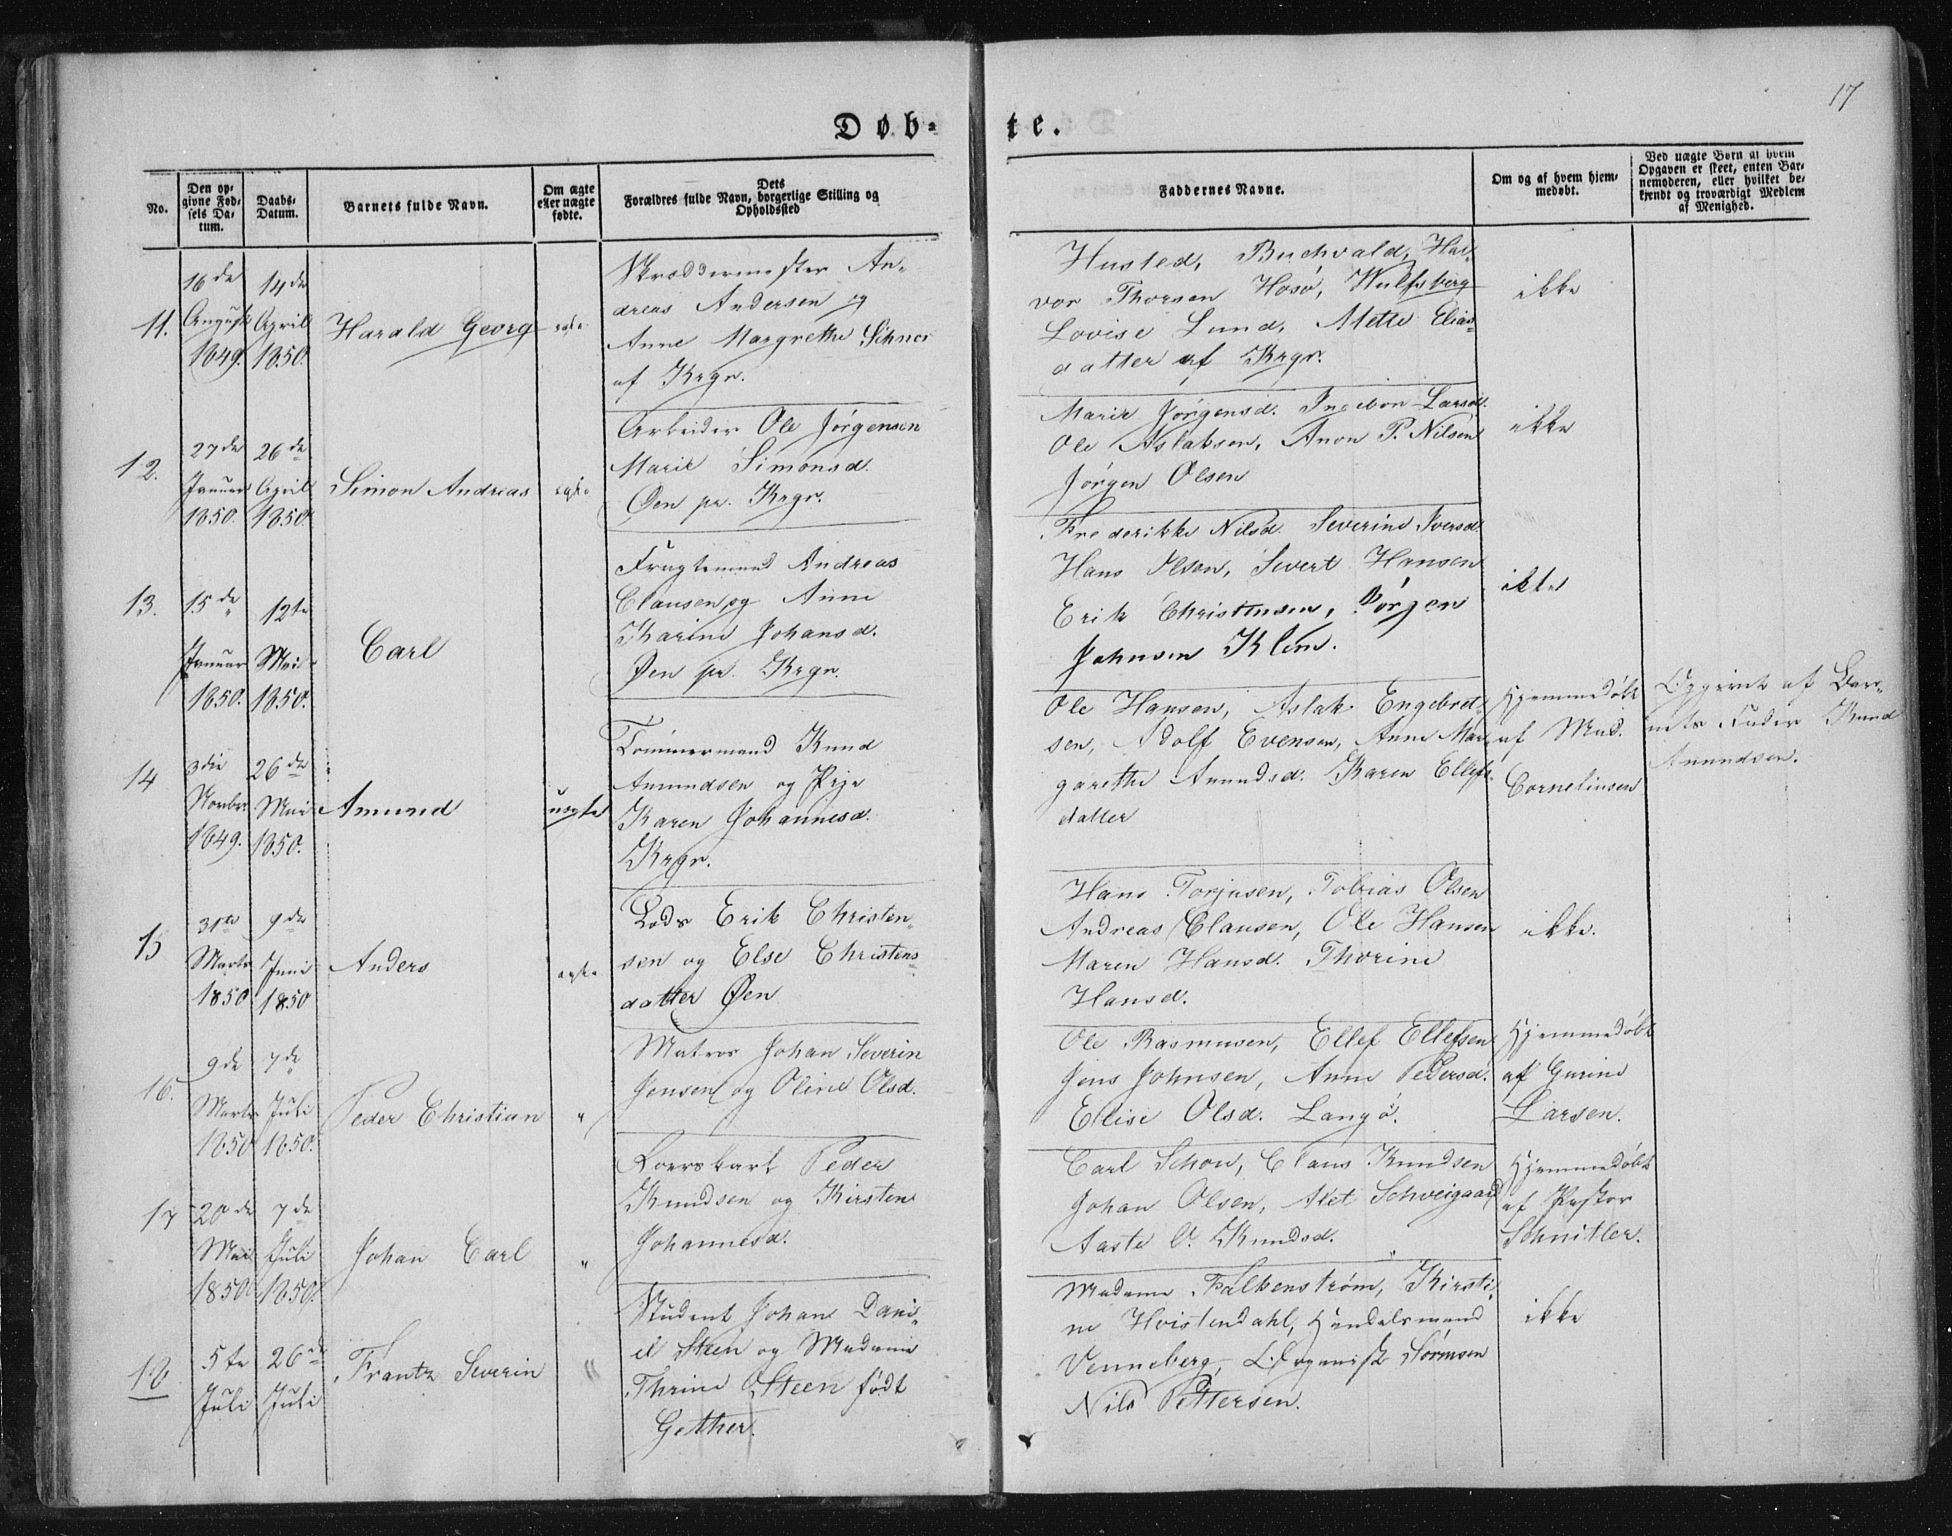 17
Døb-
te.
No.
Den op-
givne Fød-
sels Da-
tum.
Daabs-
Datum.
Barnets fulde Navn.
Om ægte
eller uægte
fødte.
Dets
Forældres fulde Navn, borgerlige Stilling og
Opholdssted
Faddernes Navne.
Om og af hvem hjem-
medøbt.
Ved uægte Børn af hvem
Opgaven er skeet, enten Bar-
nemoderen, eller hvilket be-
kjendt og troværdigt Medlem
af Menighed.
11.
16de
August
1849.
14de
April
1850.
Harald Georg
egte
Skræddermester An-
dreas Andersen og
Anne Margrethe
af Krgr.
Husted, Buchvald, Hal-
vor Thorsen Hosö, Wulfsberg
Lovise Lund, Mette Elias-
datter af Krgr.
ikke
12.
27de
Januar
1850.
26de
April
1850.
Simon Andreas
egte
Arbeider Ole Jörgensen
Marie Simonsd.
Øen pr. Krgr.
Marie Jörgensd. Ingebor Larsd.
Ole Aslaksen, Anon P. Nilsen
Jörgen Olsen
ikke
13.
15de
Januar
1850.
12te
Mai
1850.
Carl
Fragtemand Andreas
Clausen og Anne
Karine Johansd.
Øen pr. Krgr.
Frederikke Nilsd. Severine Iversd.
Hans Olsen, Sivert Hansen
Erik Christensen, Jörgen
Johnsen Klem.
ikke
14
3die
Novbr
1849.
26de
Mai
1850.
Amund
uegte
Tömmermand Knud
Amundsen og Pige
Karen Johannesd.
Krgr.
Ole Hansen, Aslak Engebret-
sen, Adolf Evensen, Anne Mar-
garethe Amundsd. Karen Ellefs-
datter
Hjemmedöbt
af Mad.
Cornelinsen
Opgivet af Bar-
nets Fader Knud
Amundsen.
15
31te
Marts
1850
9de
Juni
1850
Anders
egte
Lods Erik Christen-
sen og Else Christens-
datter Øen
Hans Torjusen, Tobias Olsen
Andreas Clausen, Ole Hansen
Maren Hansd. Thorine
Hansd.
ikke.
16.
9de
Marts
1850
7de
Juli
1850.
Peder Christian
"
Matros Johan Severin
Jensen og Oline Olsd.
Ole Rasmusen, Ellef Ellefsen
Jens Johnsen, Anne Pedersd.
Elise Olsd. Langö.
Hjemmedöbt
af Gurine
Larsen.
17
20de
Mai
1850
7de
Juli
1850.
Johan Carl
"
Peder
Knudsen og Kirsten
Johannesd.
Carl Schou, Claus Knudsen
Johan Olsen, Alet Schveigaard
Aaste C. Knudsd.
Hjemmedöbt
af Pastor
Schnitler.
18
5te
Juli
26de
Juli
Frantz Severin
"
Student Johan Dani-
el Steen og Madame
Thrine Steen født
Gether.
Madame Falkenström, Kirsti-
ne Hvistendahl, Handelsmand
Venneberg, Organist Sörensen
Nils Pettersen.
ikke